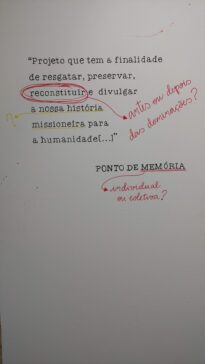 "Projeto que tem a finalidade
de resgatar, preservar,
reconstituir e divulgar
a nossa história
missioneira para
a humanidade[...]"
?
antes ou depois
das demarcações?
PONTO DE MEMÓRIA
individual
ou coletiva?